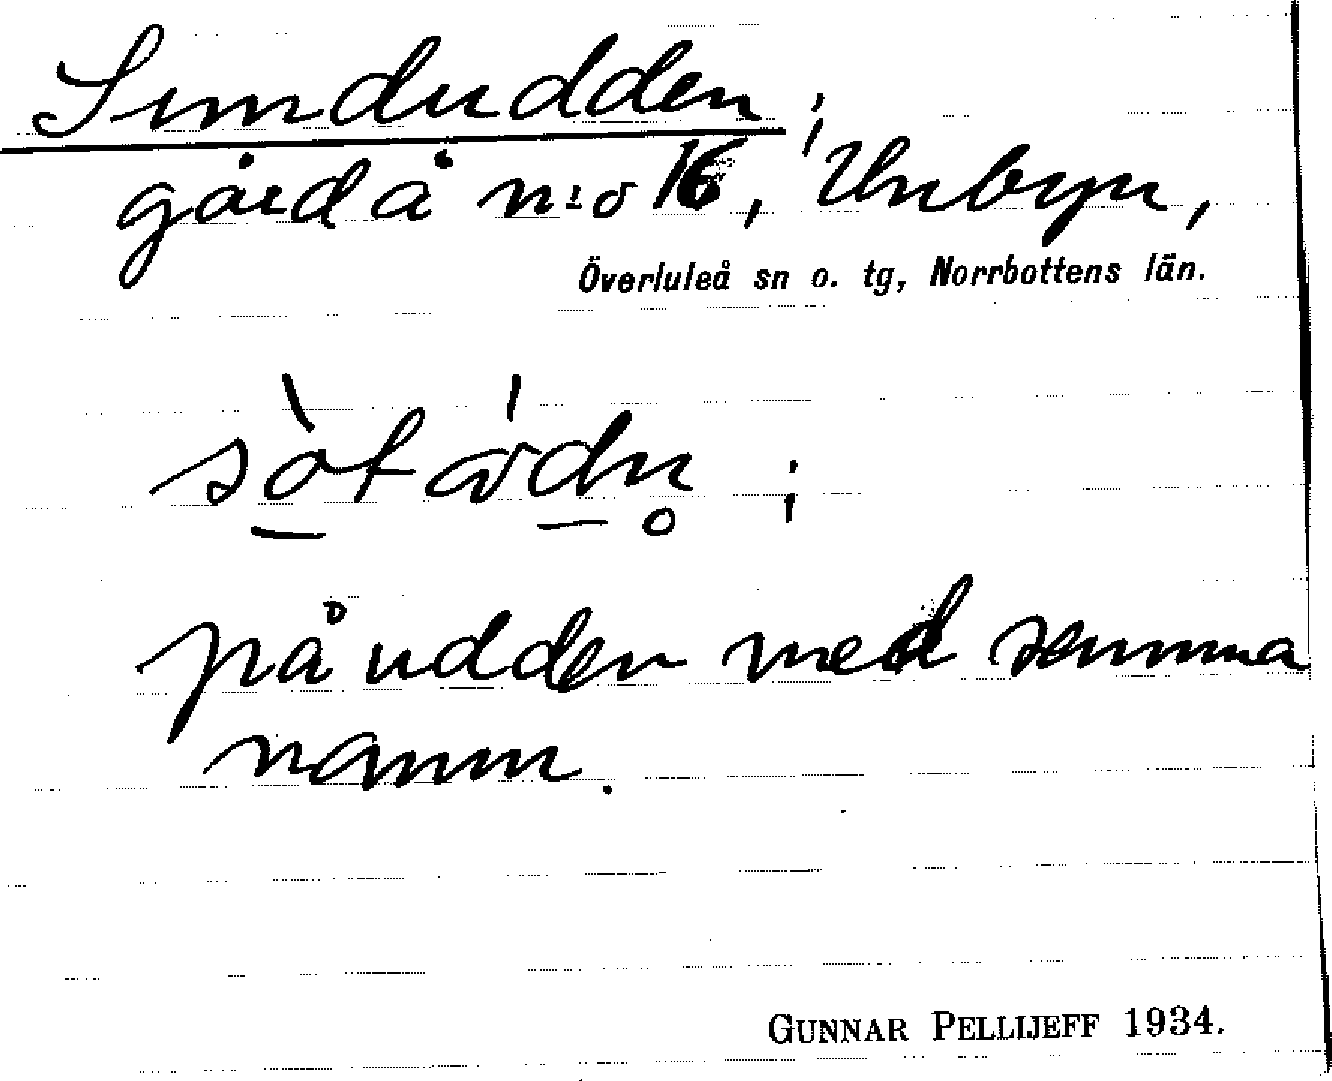 Sundudden;
gård å n:o 16, Unbyn,
Överluleå sn o. tg, Norrbottens län.
på udden med samma
namn.
GUNNAR PELLIJEFF 1934.